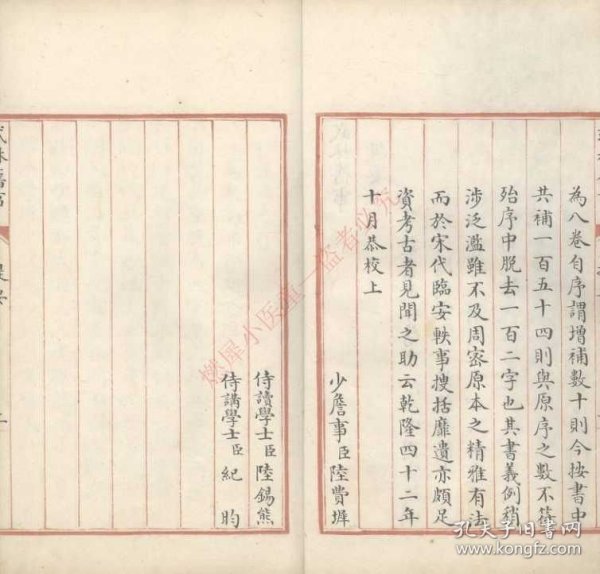 為八卷自序謂增補數十則今按書中
共補一百五十四則與原序之數不符
殆序中脫去一百二字也其書義例稍
涉泛濫雖不及周密原本之精雅有法
而於宋代臨安軼事搜括靡遺亦頗足
資考古者見聞之助云乾隆四十二年
十月恭校上
少詹事臣陸費墀
侍讀學士臣陸錫熊
侍講學士臣紀昀
提要
燃犀小医童一盗者必究
孔夫子旧书网
www.kongfz.com